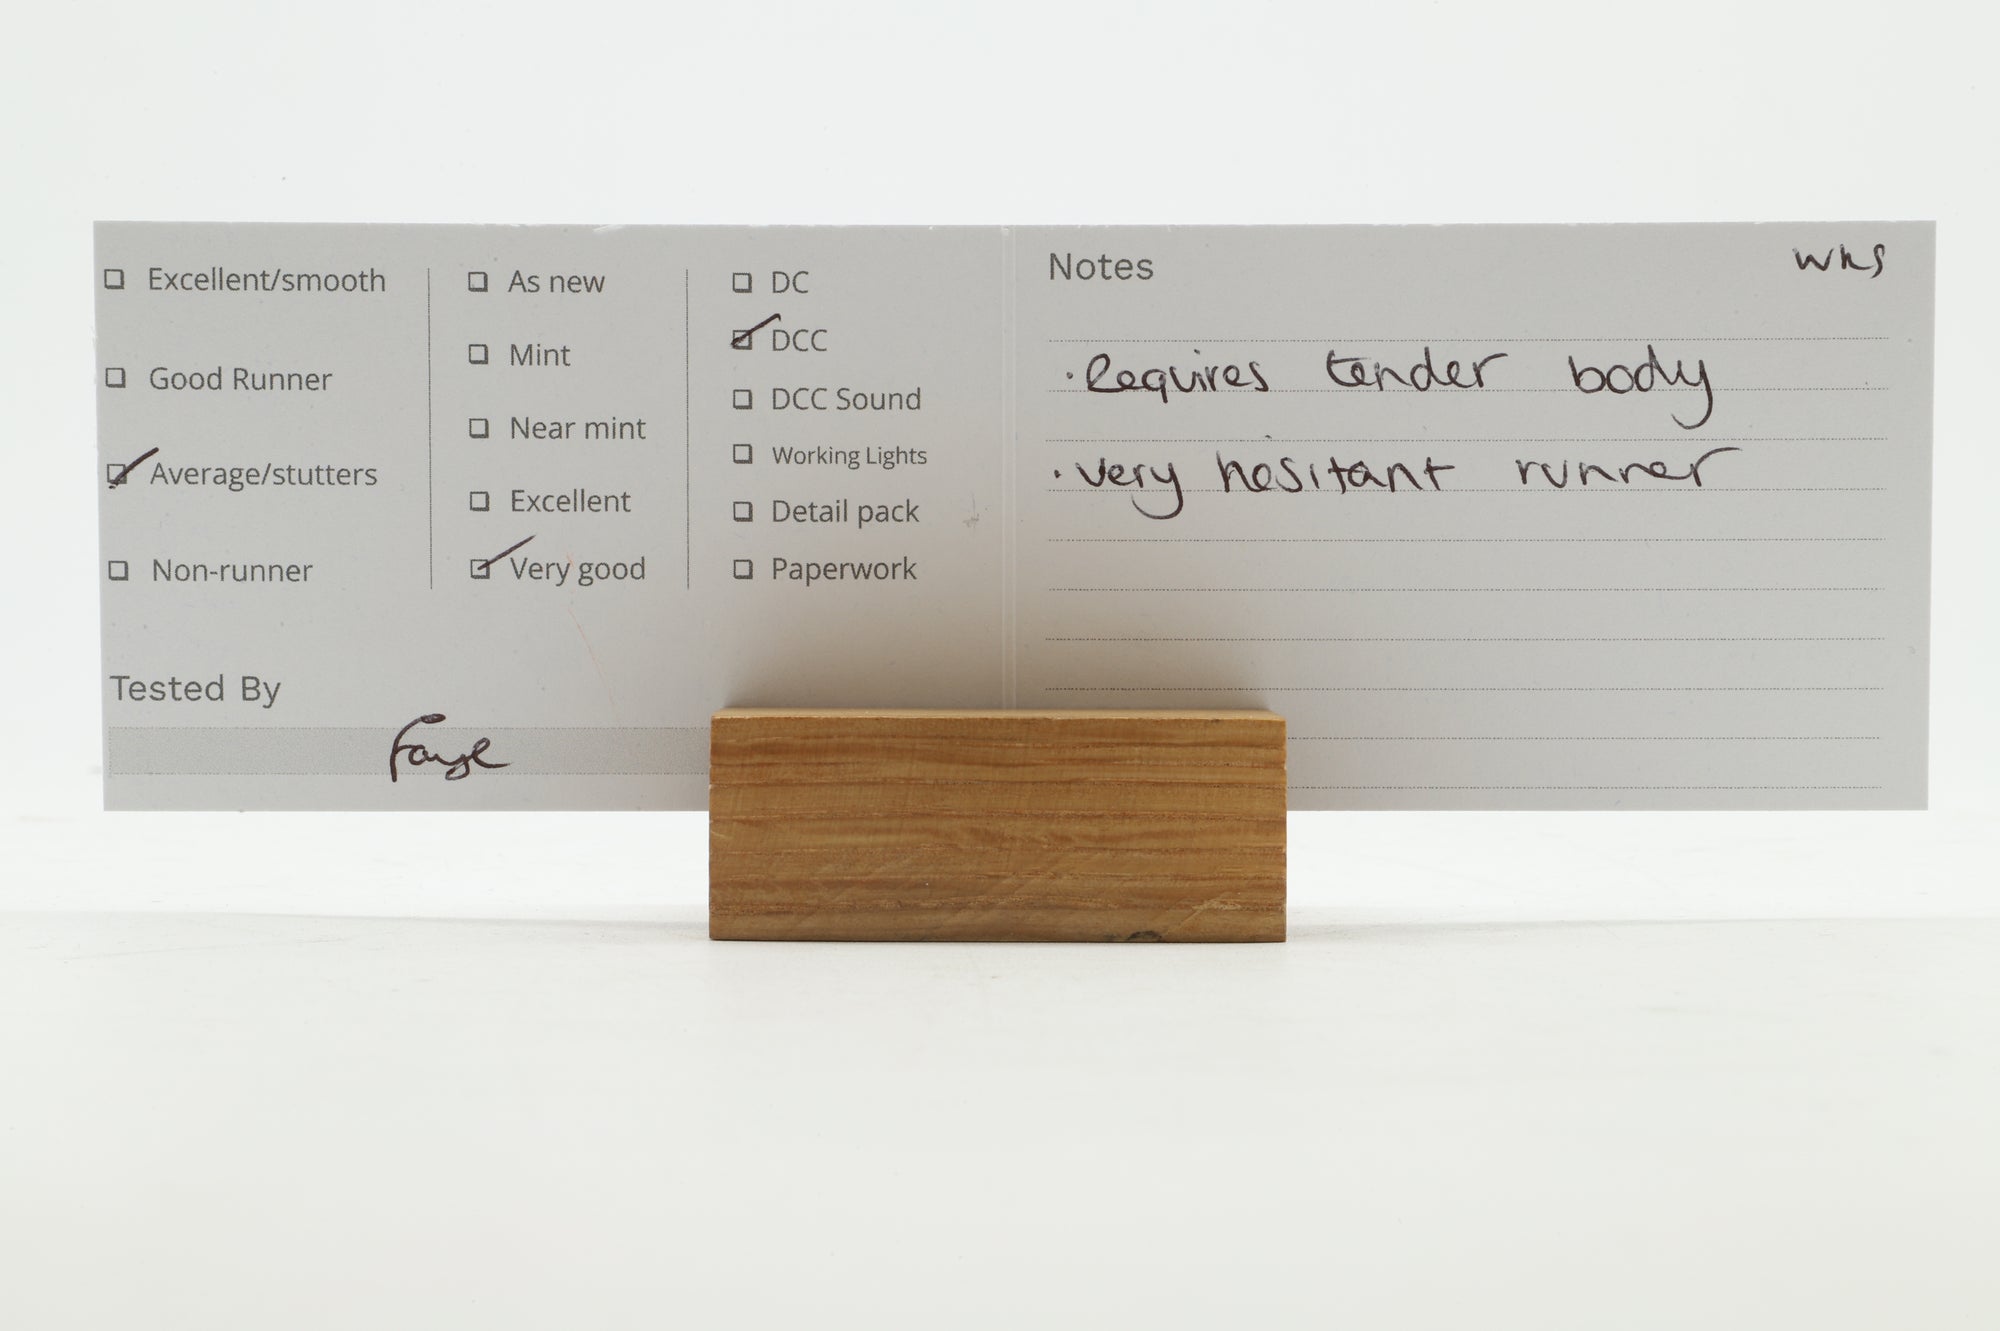 ☐ Excellent/smooth
☐ Good Runner
☑ Average/stutters
☐ Non-runner
☐ As new
☐ Mint
☐ Near mint
☐ Excellent
☑ Very good
☐ DC
☑ DCC
☐ DCC Sound
☐ Working Lights
☐ Detail pack
☐ Paperwork
Tested By
Faye
Notes
· Requires tender body
· very hesitant runner